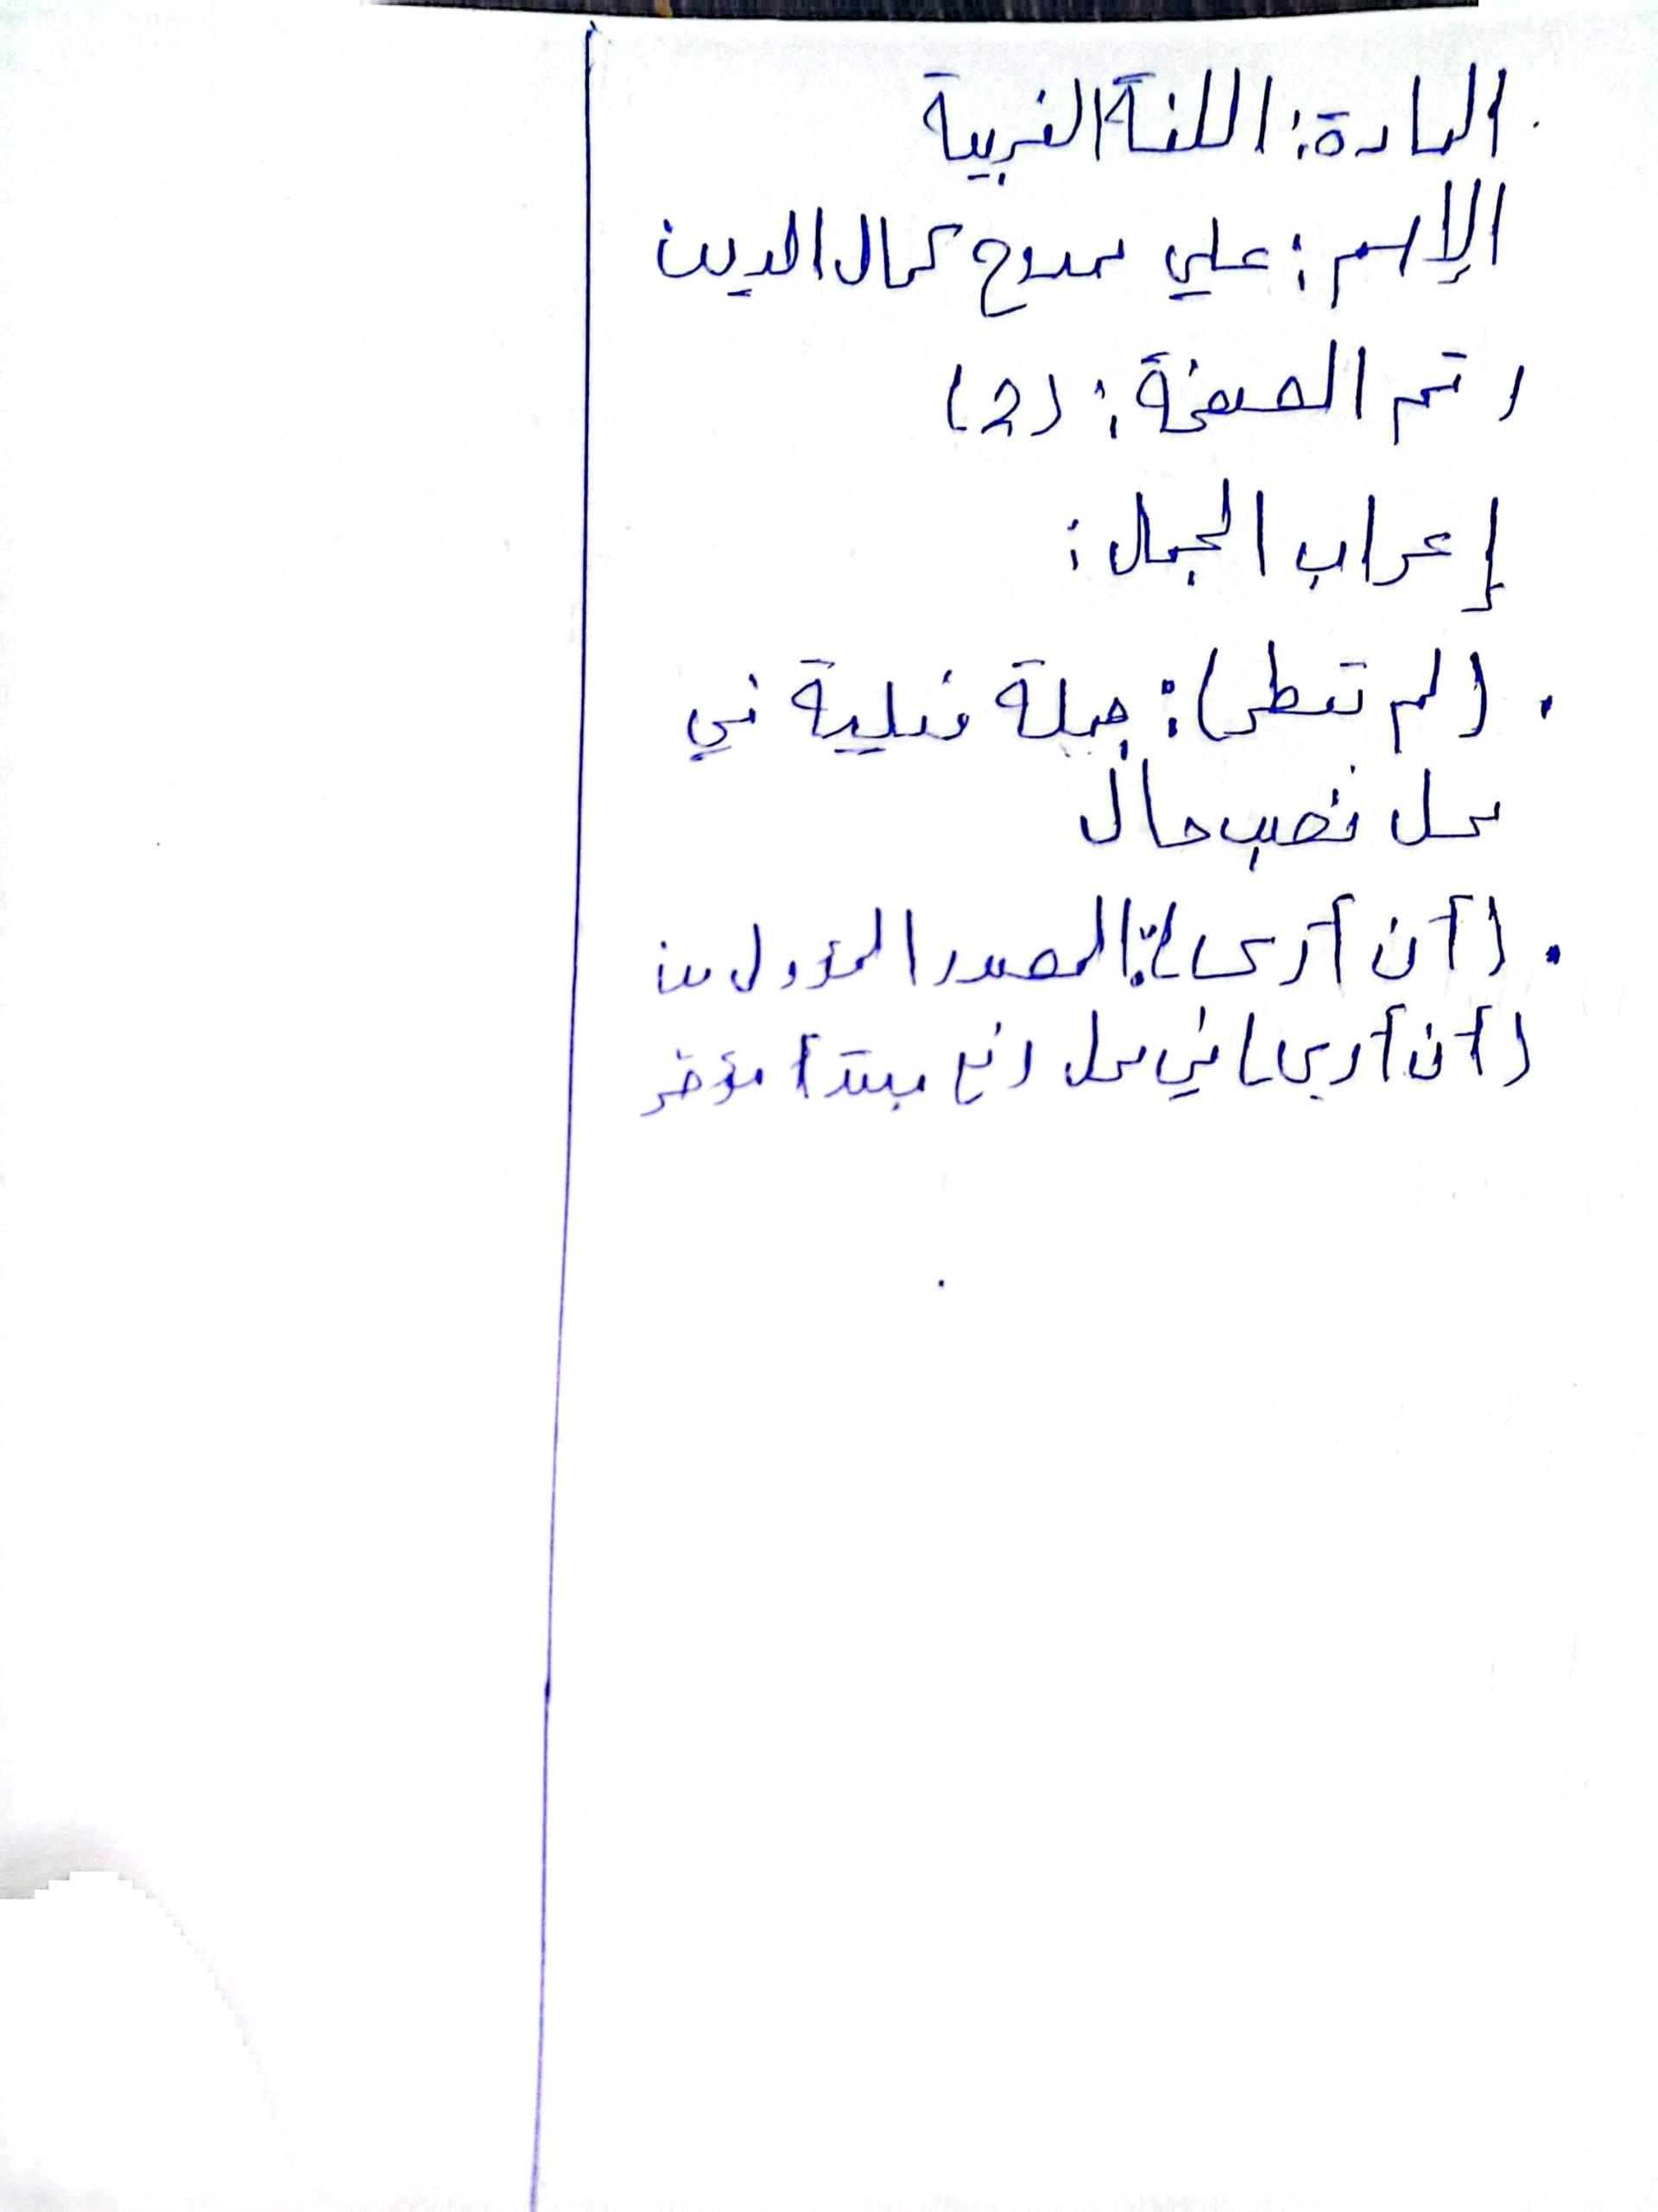 المادة: اللغة العربية
الإسم: علي ممدوح كمال الدين
رقم الصفحة: (2)
إعراب الجمل:
. (لم تعطر): جملة فعلية في
محل نصب حال
. (أن أرى): المصدر المؤول من
(أن أرى) في محل رفع مبتدأ مؤخر